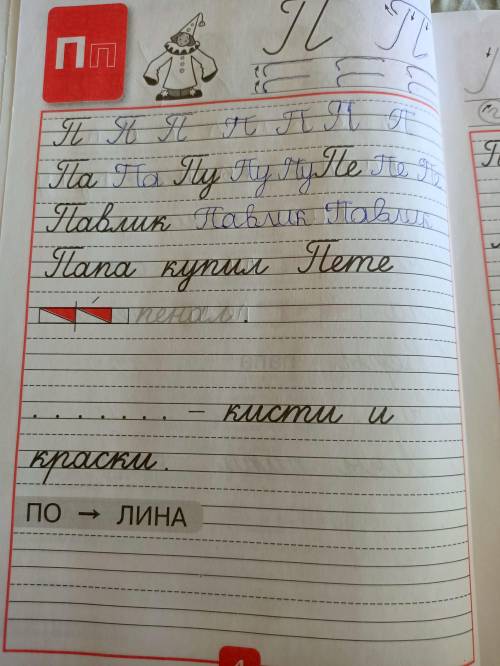 Пп
П П
П П П П П П П
Па Па Пу Пу Пу Пе Пе Пе
Павлик Павлик Павлик
Папа купил Пете
пеналы.
. . . . . . . – кисти и
краски.
ПО → ЛИНА
4